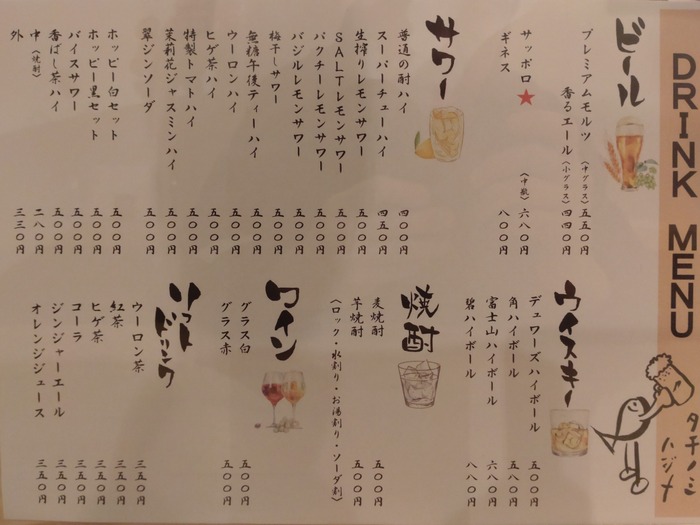 DRINK MENU
タチノミ
ハジメ
ビール
プレミアムモルツ（中グラス）五五〇円
香るエール（小グラス）四四〇円
サッポロ★（中瓶）六八〇円
ギネス 八〇〇円
サワー
普通の酎ハイ 四〇〇円
スーパーチューハイ 四五〇円
生搾りレモンサワー 五〇〇円
SALTレモンサワー 五〇〇円
パクチーレモンサワー 五〇〇円
バジルレモンサワー 五〇〇円
梅干しサワー 五〇〇円
無糖午後ティーハイ 五〇〇円
ウーロンハイ 五〇〇円
ヒゲ茶ハイ 五〇〇円
特製トマトハイ 五〇〇円
茉莉花ジャスミンハイ 五〇〇円
翠ジンソーダ 五〇〇円
ホッピー白セット 五〇〇円
ホッピー黒セット 五〇〇円
バイスサワー 五〇〇円
香ばし茶ハイ 五〇〇円
中（焼酎） 二八〇円
外 三三〇円
ウイスキー
デュワーズハイボール 五〇〇円
角ハイボール 五八〇円
富士山ハイボール 六八〇円
碧ハイボール 八八〇円
焼酎
麦焼酎 五〇〇円
芋焼酎 五〇〇円
（ロック・水割り・お湯割り・ソーダ割）
ワイン
グラス白 五〇〇円
グラス赤 五〇〇円
ソフトドリンク
ウーロン茶 三五〇円
紅茶 三五〇円
ヒゲ茶 三五〇円
コーラ 三五〇円
ジンジャーエール 三五〇円
オレンジジュース 三五〇円